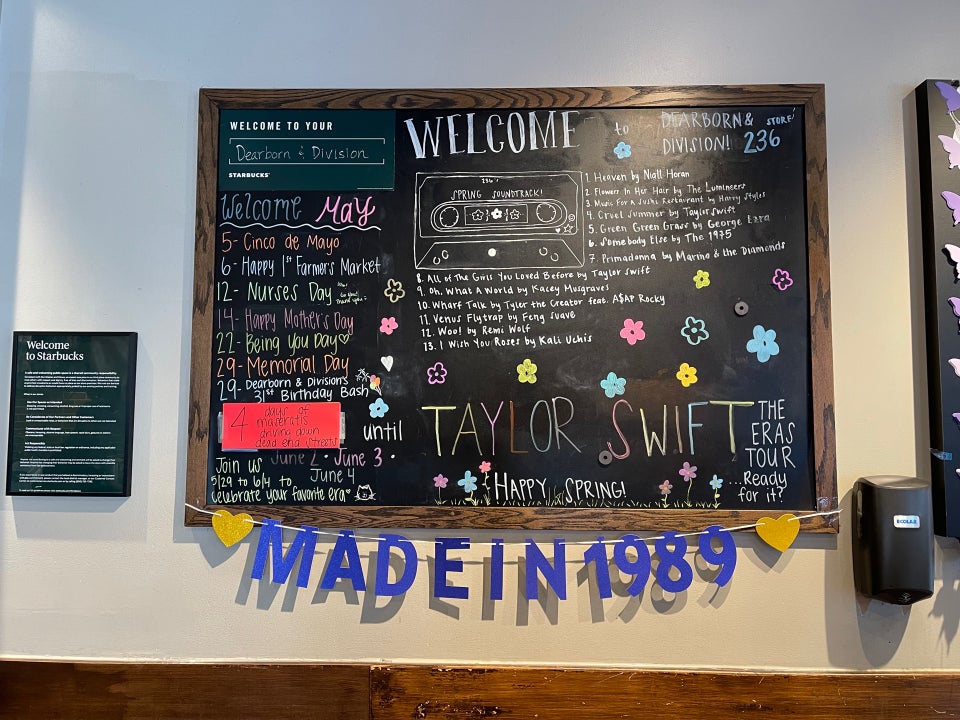 WELCOME TO YOUR
Dearborn & Division
STARBUCKS
Welcome May
5- Cinco de Mayo
6- Happy 1st Farmers Market
12- Nurses Day
14- Happy Mother's Day
22- Being You Day
29- Memorial Day
29- Dearborn & Division's
31st Birthday Bash
4 days of
maseratis
driving down
dead end streets
until
June 2 · June 3 ·
June 4
Join us
5/29 to 6/4 to
celebrate your favorite era
WELCOME to DEARBORN &
DIVISION!
STORE
236
236
SPRING SOUNDTRACK!
1. Heaven by Niall Horan
2. Flowers In Her Hair by The Lumineers
3. Music For A Sushi Restaurant by Harry Styles
4. Cruel Summer by Taylor Swift
5. Green Green Grass by George Ezra
6. Somebody Else by The 1975
7. Primadonna by Marino & the Diamonds
8. All of The Girls You Loved Before by Taylor Swift
9. Oh, What A World by Kacey Musgraves
10. Wharf Talk by Tyler the Creator feat. A$AP Rocky
11. Venus Flytrap by Feng Suave
12. Woo! by Remi Wolf
13. I Wish You Roses by Kali Uchis
TAYLOR SWIFT
THE
ERAS
TOUR
...Ready
for it?
HAPPY SPRING!
MADE IN 1989
Welcome
to Starbucks
ECOLAB